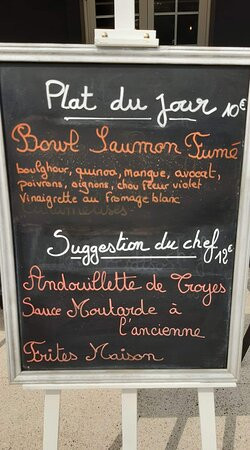 Plat du jour 10€
Bowl Saumon Fumé
boulghour, quinoa, mangue, avocat,
poivrons, oignons, chou fleur violet
Vinaigrette au fromage blanc
Suggestion du chef 18€
Andouillette de Troyes
Sauce Moutarde à
l'ancienne
Frites Maison